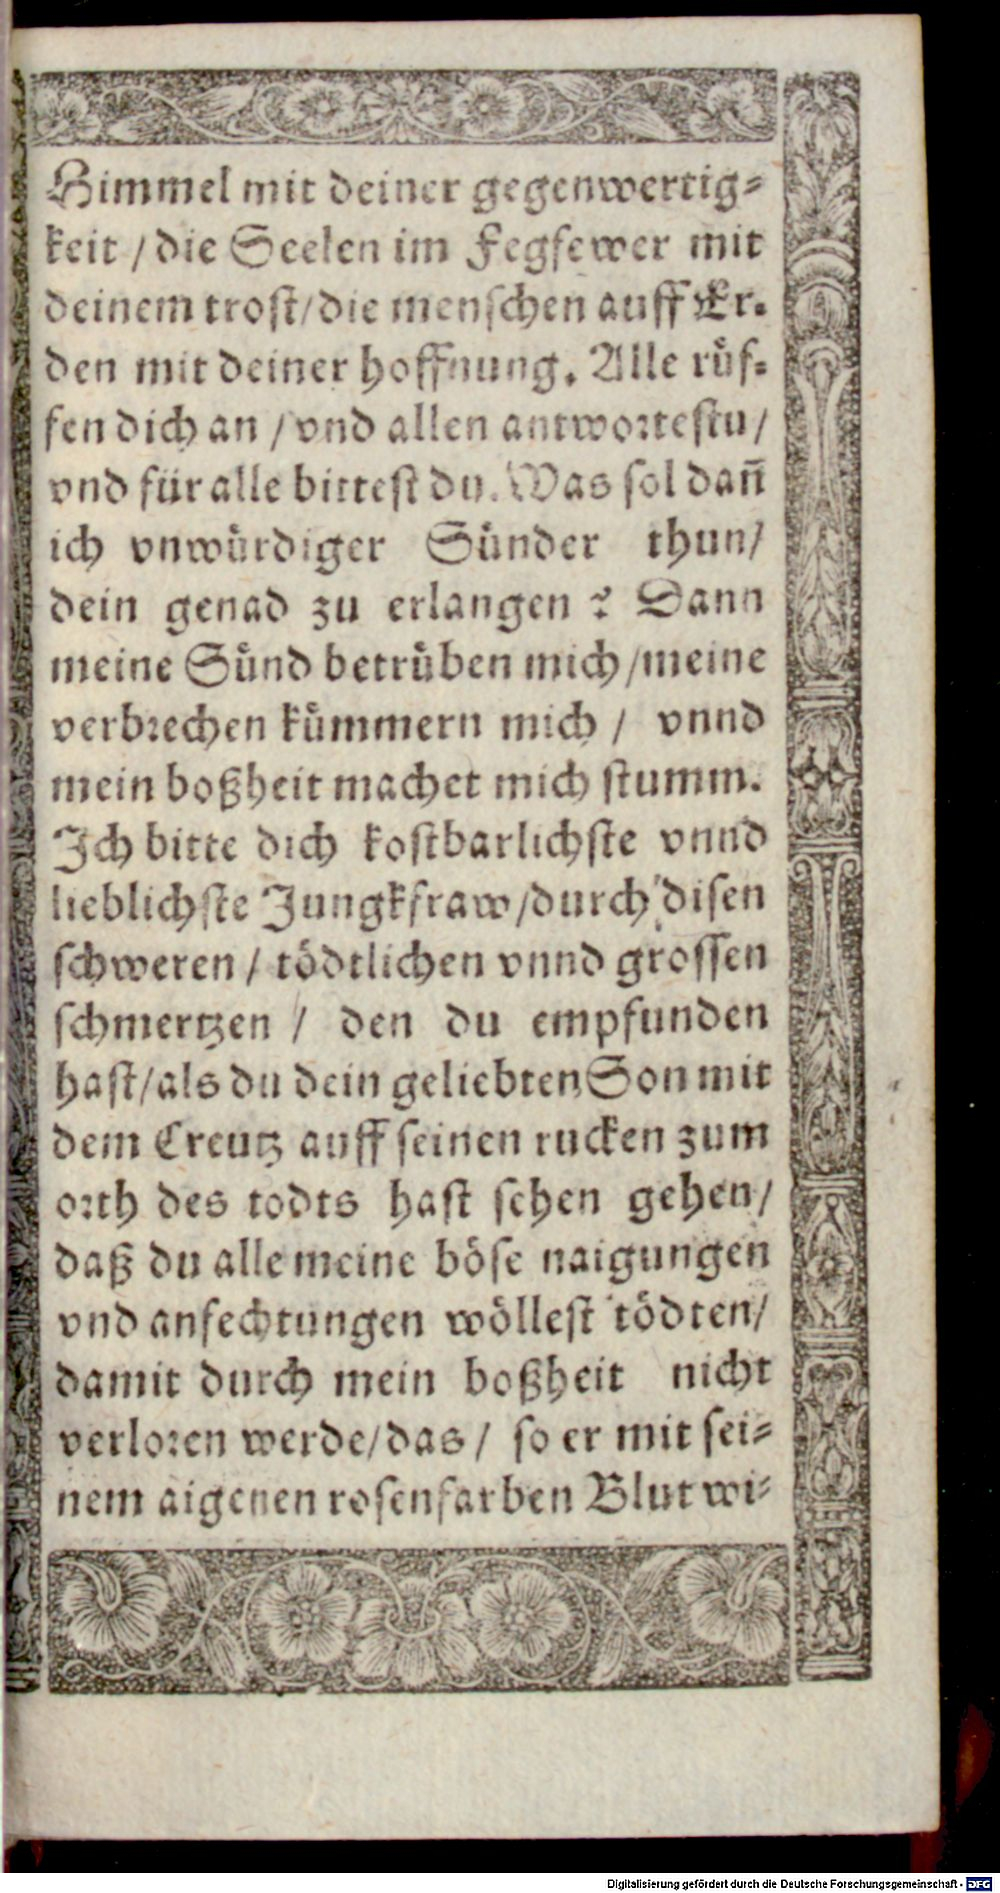 Himmel mit deiner gegenwertig⸗
keit / die Seelen im Fegfewer mit
deinem trost/die menschen auff Er⸗
den mit deiner hoffnung. Alle ruͤf⸗
fen dich an / vnd allen antwortestu/
vnd für alle bittest du. Was sol dañ
ich vnwuͤrdiger Suͤnder thun/
dein genad zu erlangen? Dann
meine Suͤnd betruͤben mich/meine
verbrechen kuͤmmern mich / vnnd
mein boßheit machet mich stumm.
Ich bitte dich kostbarlichste vnnd
lieblichste Jungkfraw/durch disen
schweren / toͤdtlichen vnnd grossen
schmertzen / den du empfunden
hast/als du dein geliebten Son mit
dem Creutz auff seinen rucken zum
orth des todts hast sehen gehen/
daß du alle meine boͤse naigungen
vnd anfechtungen woͤllest toͤdten/
damit durch mein boßheit nicht
verloren werde/das / so er mit sei⸗
nem aigenen rosenfarben Blut wi⸗
Digitalisierung gefördert durch die Deutsche Forschungsgemeinschaft - DFG